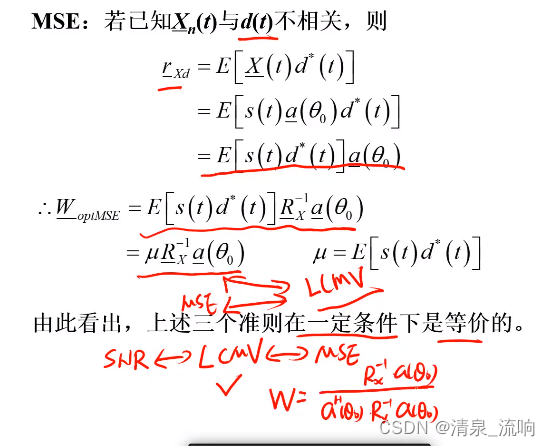 MSE：若已知X_n(t)与d(t)不相关，则
r_{Xd} = E[X(t)d*(t)]
= E[s(t)a(θ₀)d*(t)]
= E[s(t)d*(t)]a(θ₀)
∴W_{optMSE} = E[s(t)d*(t)]R_X^{-1}a(θ₀)
= μR_X^{-1}a(θ₀) μ = E[s(t)d*(t)]
MSE LCMV
由此看出，上述三个准则在一定条件下是等价的。
SNR ↔ LCMV ↔ MSE
✓ W = R_x^{-1}a(θ₀) / a^H(θ₀)R_x^{-1}a(θ₀)
CSDN @清泉_流响